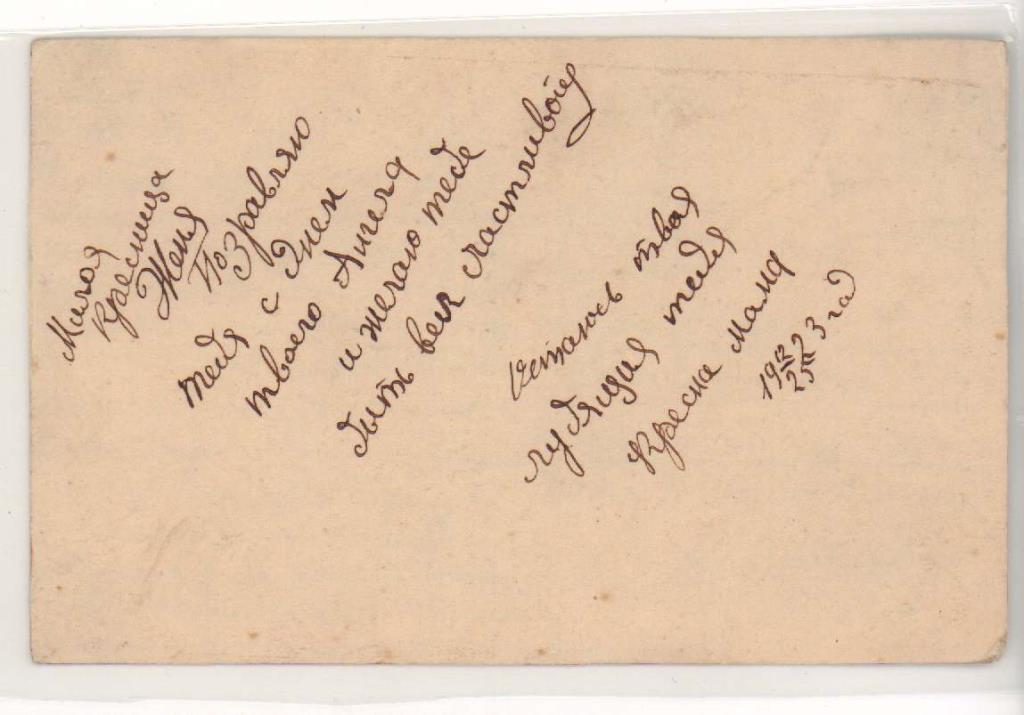 Милая
кресница
Женя
Поздравляю
тебя с Днем
твоего Ангела
и жечаю тебе
быть век счастливой
Остаюсь твая
лубящия тебя
Кресна Мама
19 12/25 XII 23 год